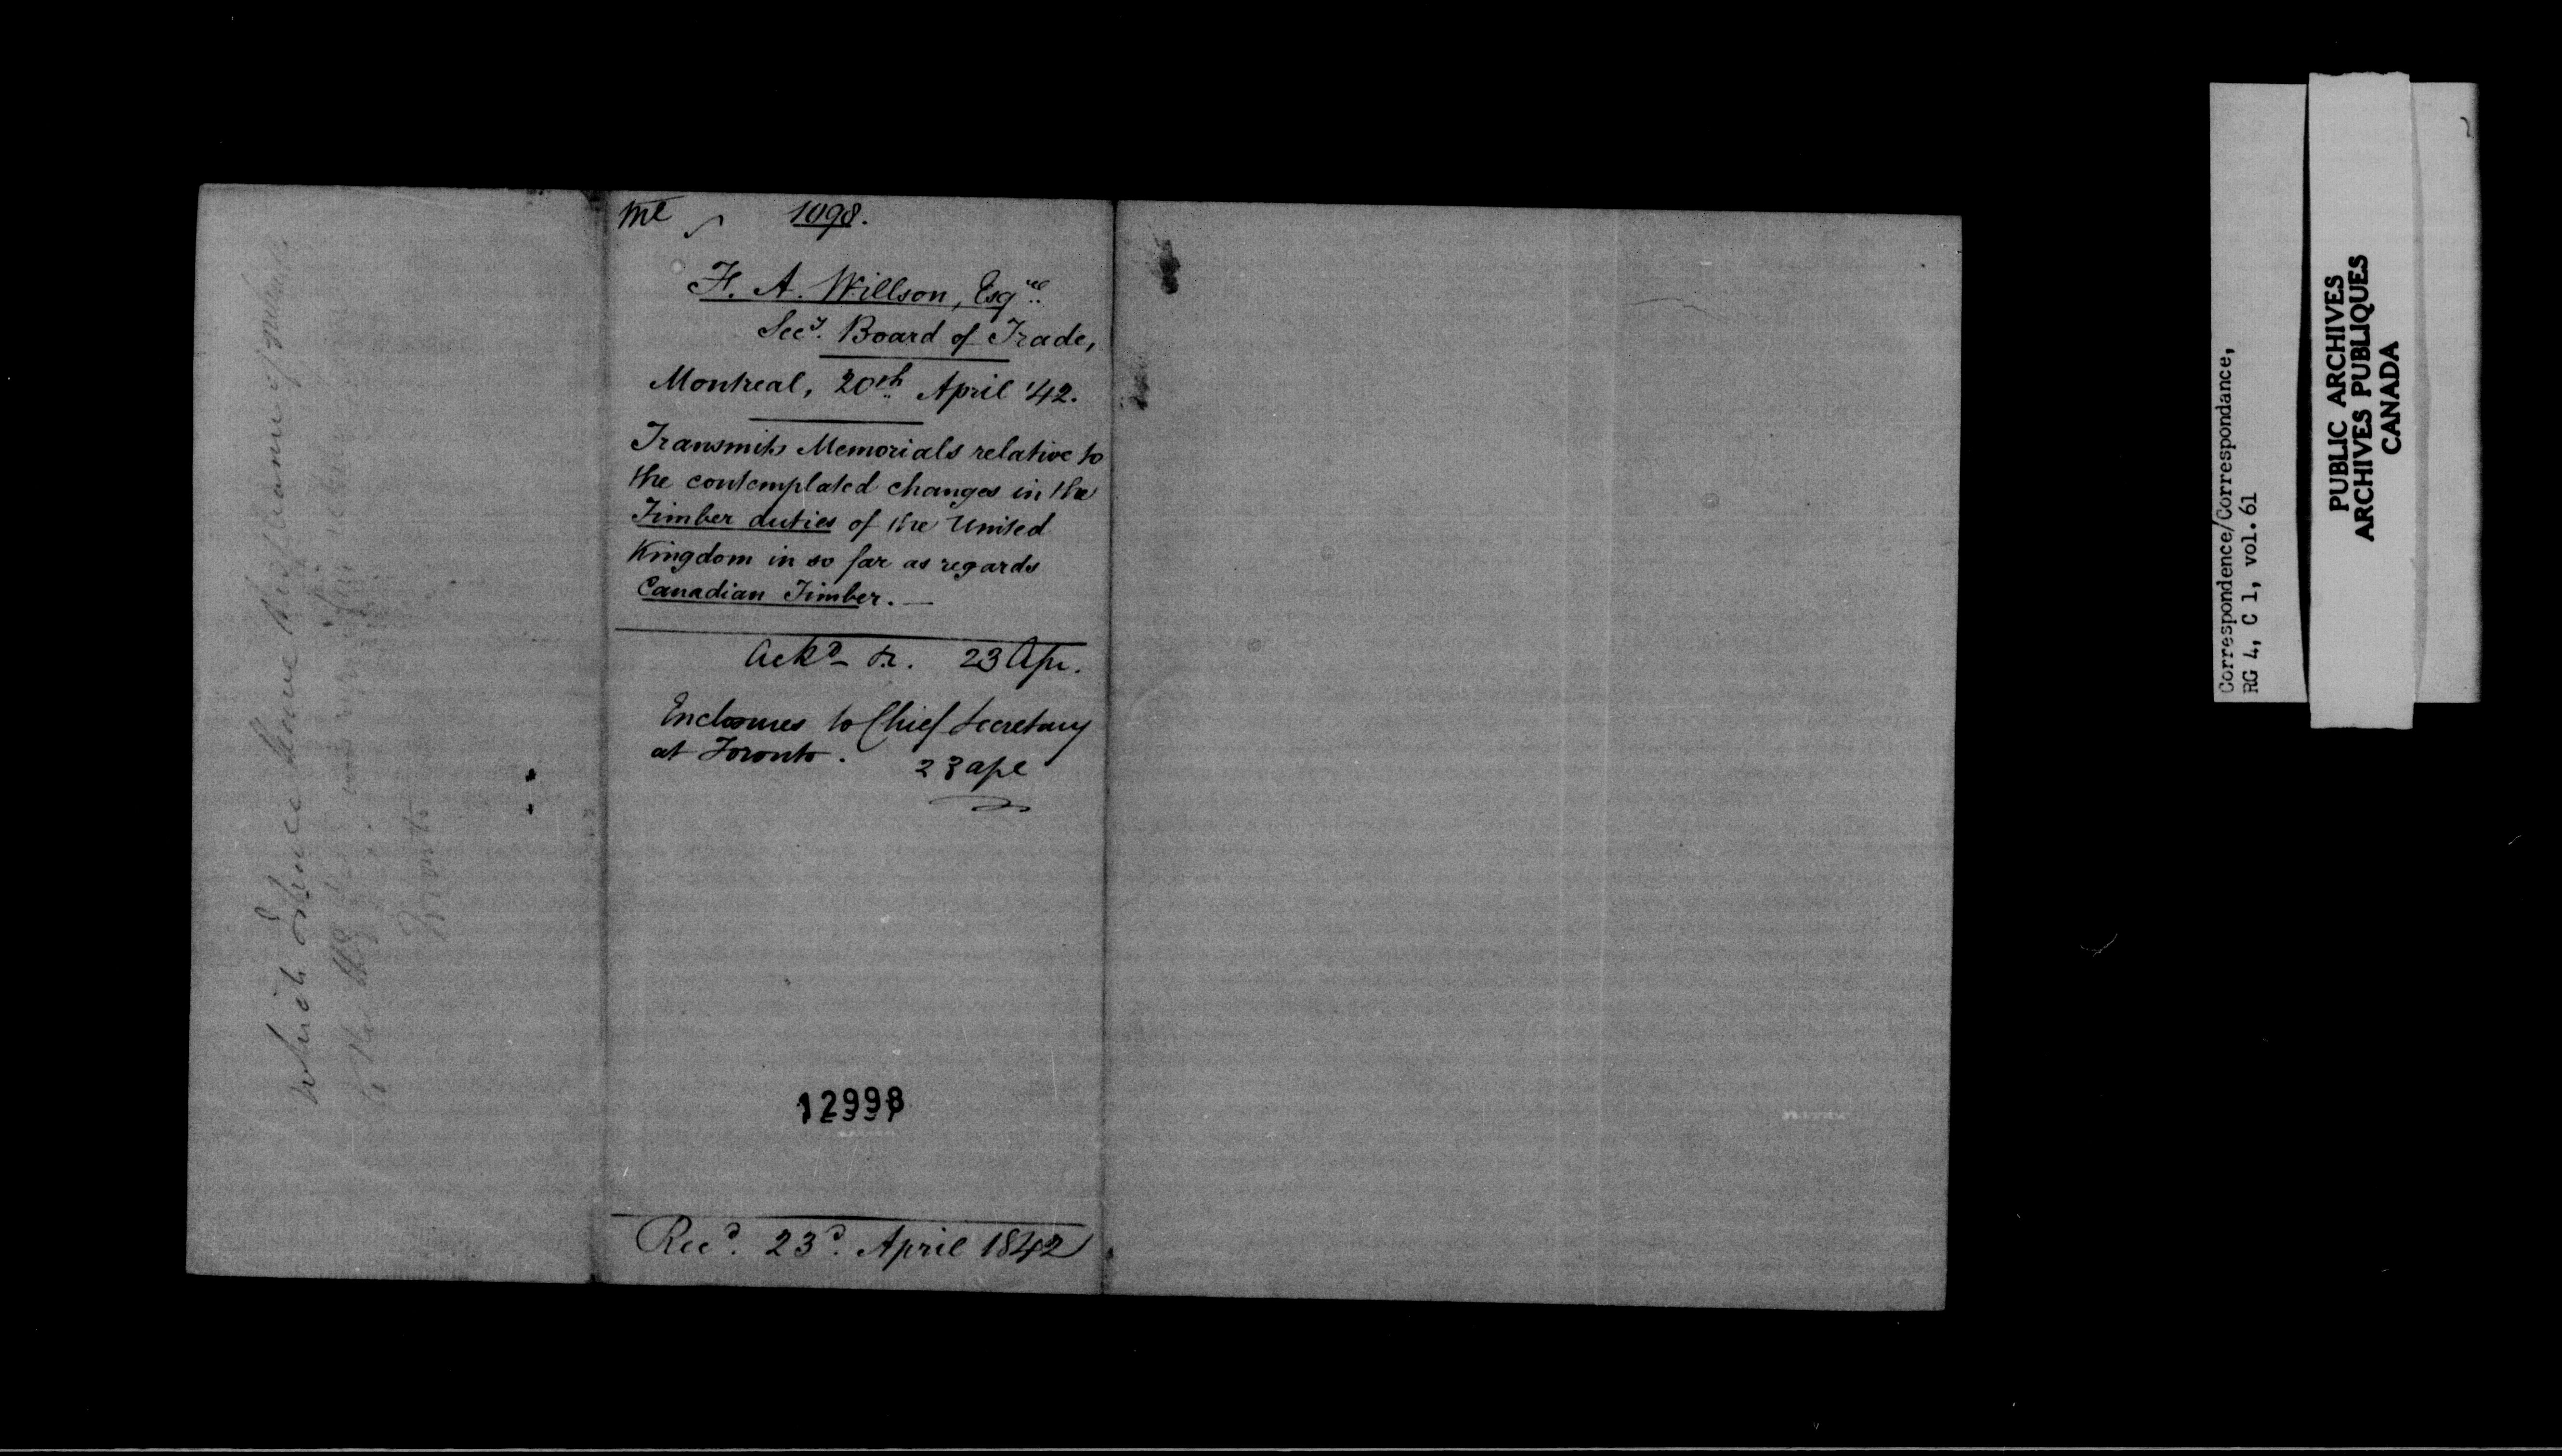 1098.
F. A. Willson, Esqre.
Secy. Board of Trade,
Montreal, 20th April '42.
Transmits Memorials relative to
the contemplated changes in the
Timber duties of the United
Kingdom in so far as regards
Canadian Timber. —
Ackd. &c. 23 Apr.
Enclosures to Chief Secretary
at Toronto.
23 apl
12998
Recd. 23d. April 1842
Correspondence/Correspondance,
RG 4, C 1, vol. 61
PUBLIC ARCHIVES
ARCHIVES PUBLIQUES
CANADA